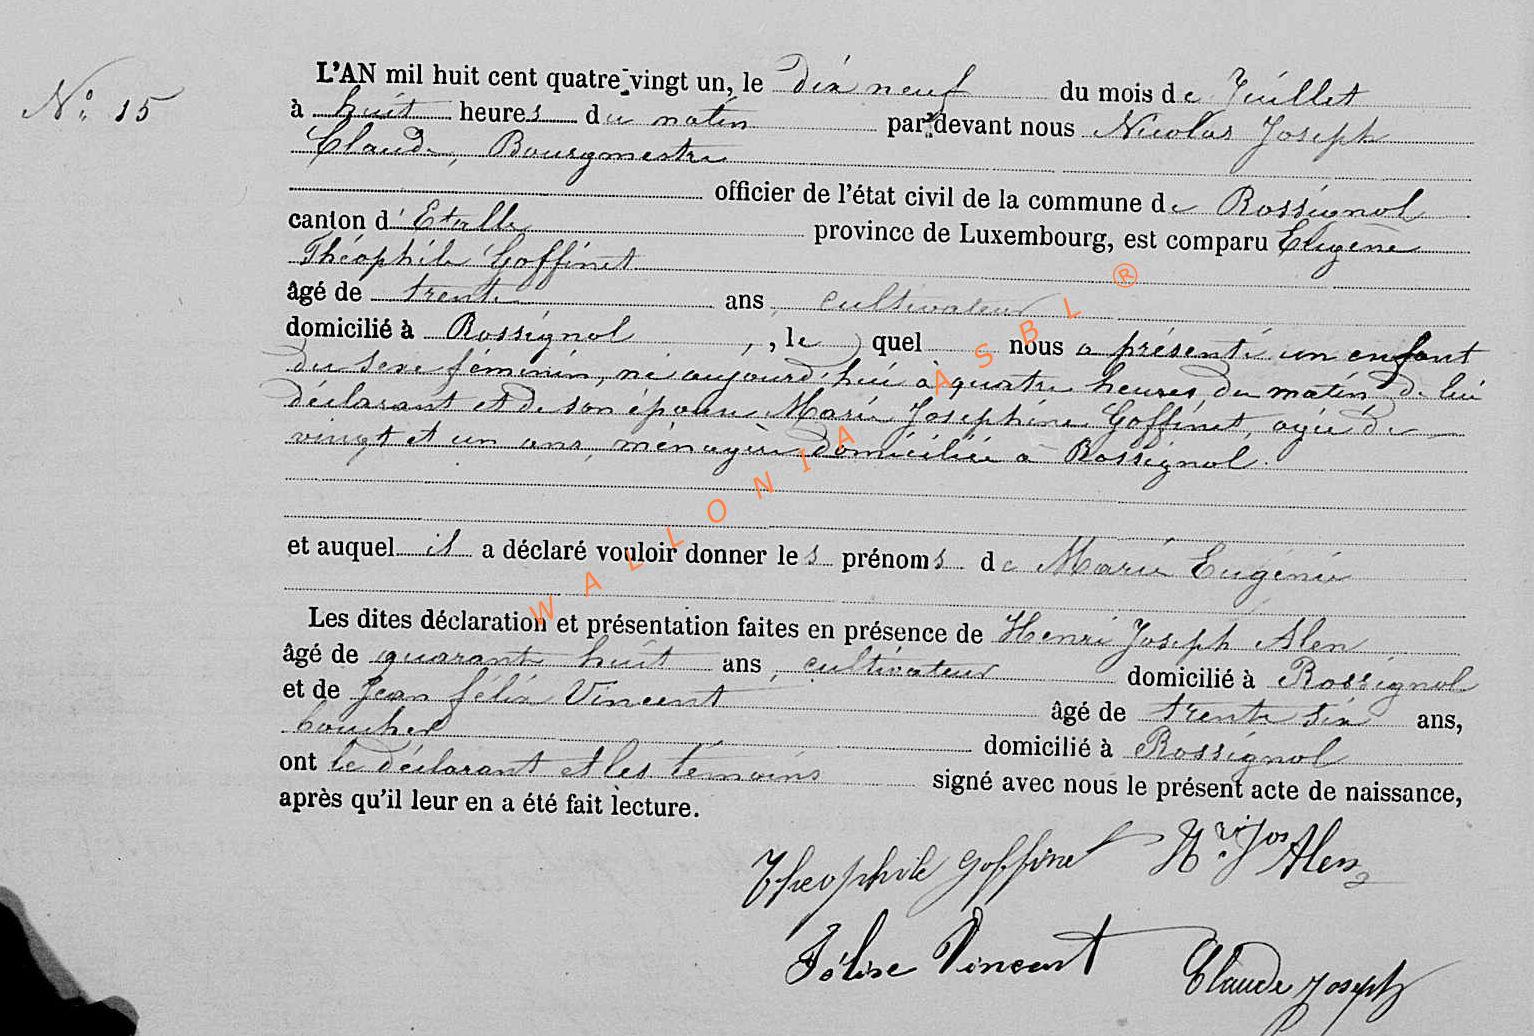 N° 15
L'AN mil huit cent quatre-vingt un, le dix neuf du mois de Juillet
à huit heures du matin par-devant nous Nicolas Joseph
Claude, Bourgmestre
officier de l'état civil de la commune de Rossignol
canton d'Etalle province de Luxembourg, est comparu Eugène
Théophile Goffinet
âgé de trente ans, cultivateur
domicilié à Rossignol, le quel nous a présenté un enfant
du sexe féminin, né aujourd'hui à quatre heures du matin de lui
déclarant et de son épouse Marie Joséphine Goffinet, agée de
vingt et un ans, ménagère domiciliée à Rossignol.
et auquel il a déclaré vouloir donner les prénoms de Marie Eugénie
Les dites déclaration et présentation faites en présence de Henri Joseph Alen
âgé de quarante huit ans, cultivateur domicilié à Rossignol
et de Jean félix Vincent âgé de trente six ans,
boucher domicilié à Rossignol
ont le déclarant et les témoins signé avec nous le présent acte de naissance,
après qu'il leur en a été fait lecture.
Theophile Goffinet Hri Jos Alen
Félixe Vincent Claude Joseph
WALLONIA ASBL ®